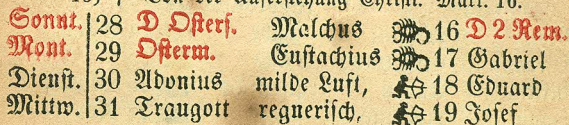 Sonnt. 28 D Osters. Malchus 16 D 2 Rem.
Mont. 29 Osterm. Eustachius 17 Gabriel
Dienst. 30 Adonius milde Luft, 18 Eduard
Mittw. 31 Traugott regnerisch, 19 Josef